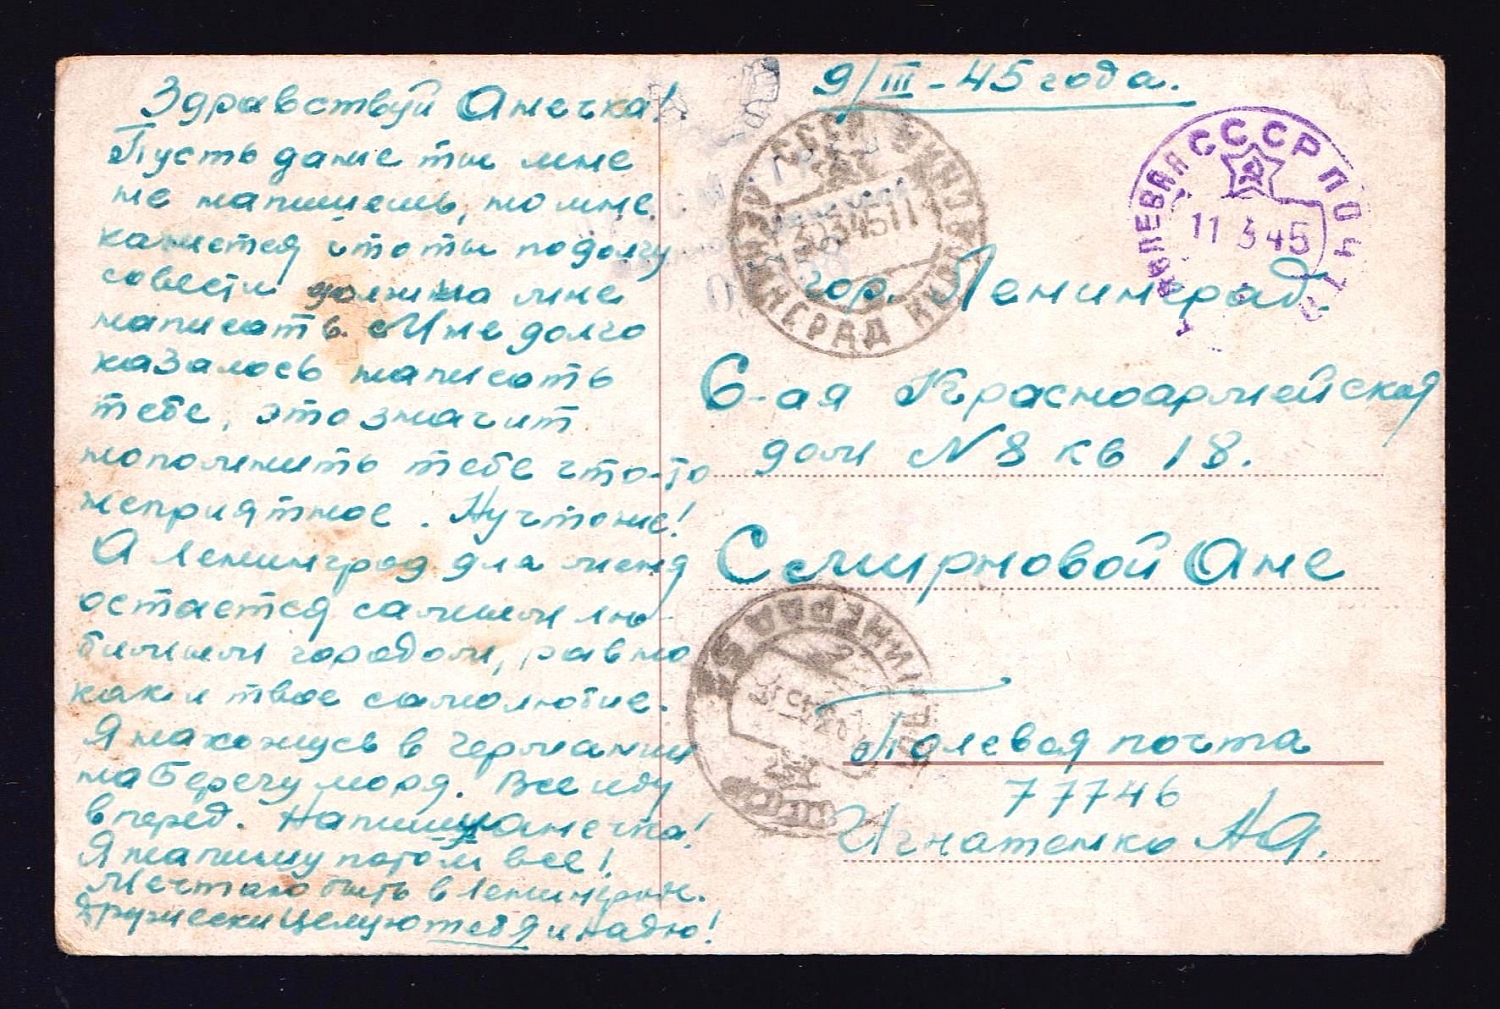 Здравствуй Анечка!
Пусть даже ты мне
не напишешь, но мне
кажется что ты по долгу
совести должна мне
написать. Мне долго
казалось написать
тебе, это значит
напомнить тебе что-то
неприятное. Ну что же!
А Ленинград для меня
остается самым лю-
бимым городом, равно
как и твое самолюбие.
Я нахожусь в Германии
на берегу моря. Все иду
вперед. Напиши Анечка!
Я напишу потом все!
Мечтаю быть в Ленинграде.
Дружески целую тебя и Надю!
9/III-45 года.
СССР
ЛЕНИНГРАД
ПОЛЕВАЯ ПОЧТА СССР
11 3 45
гор. Ленинград.
6-ая Красноармейская
дом № 8 кв 18.
Смирновой Ане
ЛЕНИНГРАД
СССР
Полевая почта
77746
Игнатенко А.Я.